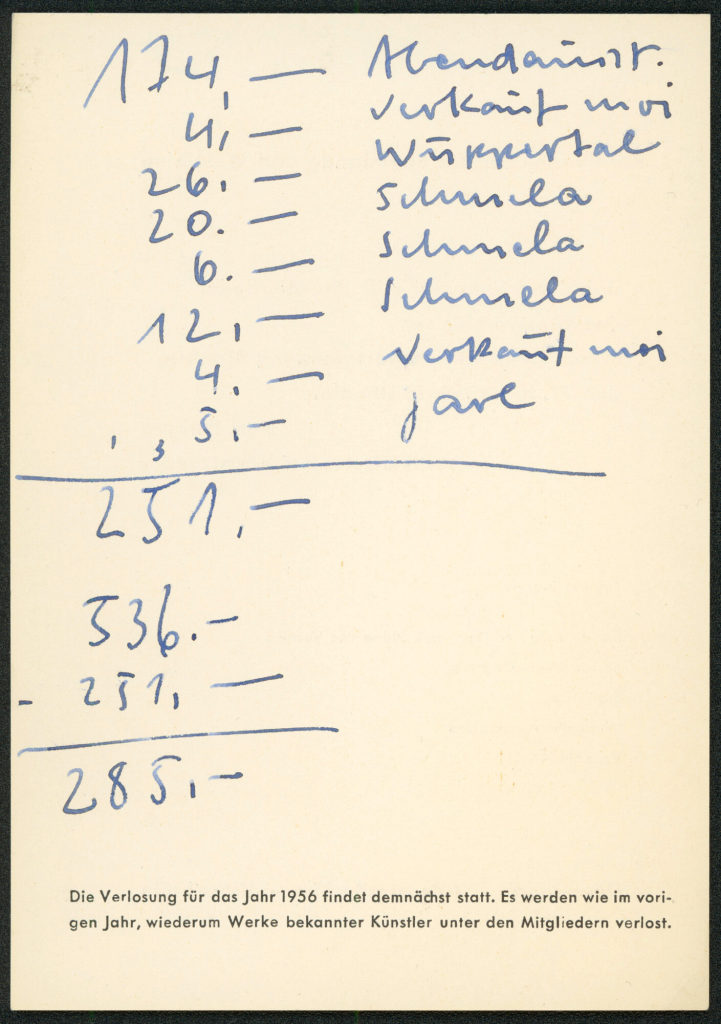 174,— Abendausst.
4,— verkauf moi
26.— Wuppertal
20.— Schmela
6.— Schmela
12,— Schmela
4.— Verkauf moi
5.—
251,—
536.—
- 251,—
285,—
Die Verlosung für das Jahr 1956 findet demnächst statt. Es werden wie im vori-
gen Jahr, wiederum Werke bekannter Künstler unter den Mitgliedern verlost.